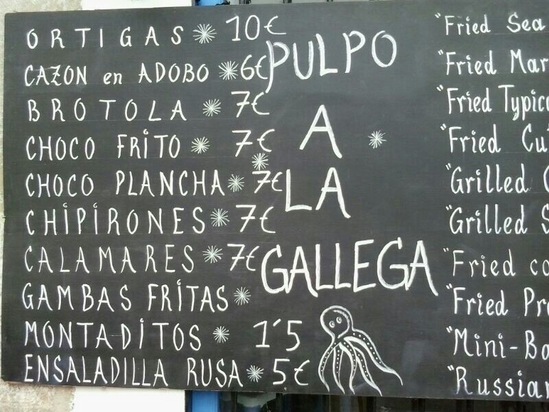 ORTIGAS * 10€
CAZON en ADOBO * 6€
BROTOLA * 7€
CHOCO FRITO * 7€
CHOCO PLANCHA * 7€
CHIPIRONES * 7€
CALAMARES * 7€
GAMBAS FRITAS *
MONTADITOS * 1'5
ENSALADILLA RUSA * 5€
PULPO
A
LA
GALLEGA
"Fried Sea
"Fried Mar
"Fried Typico
"Fried Cu
"Grilled
"Grilled S
"Fried ca
"Fried Pr
"Mini-Bo
"Russian